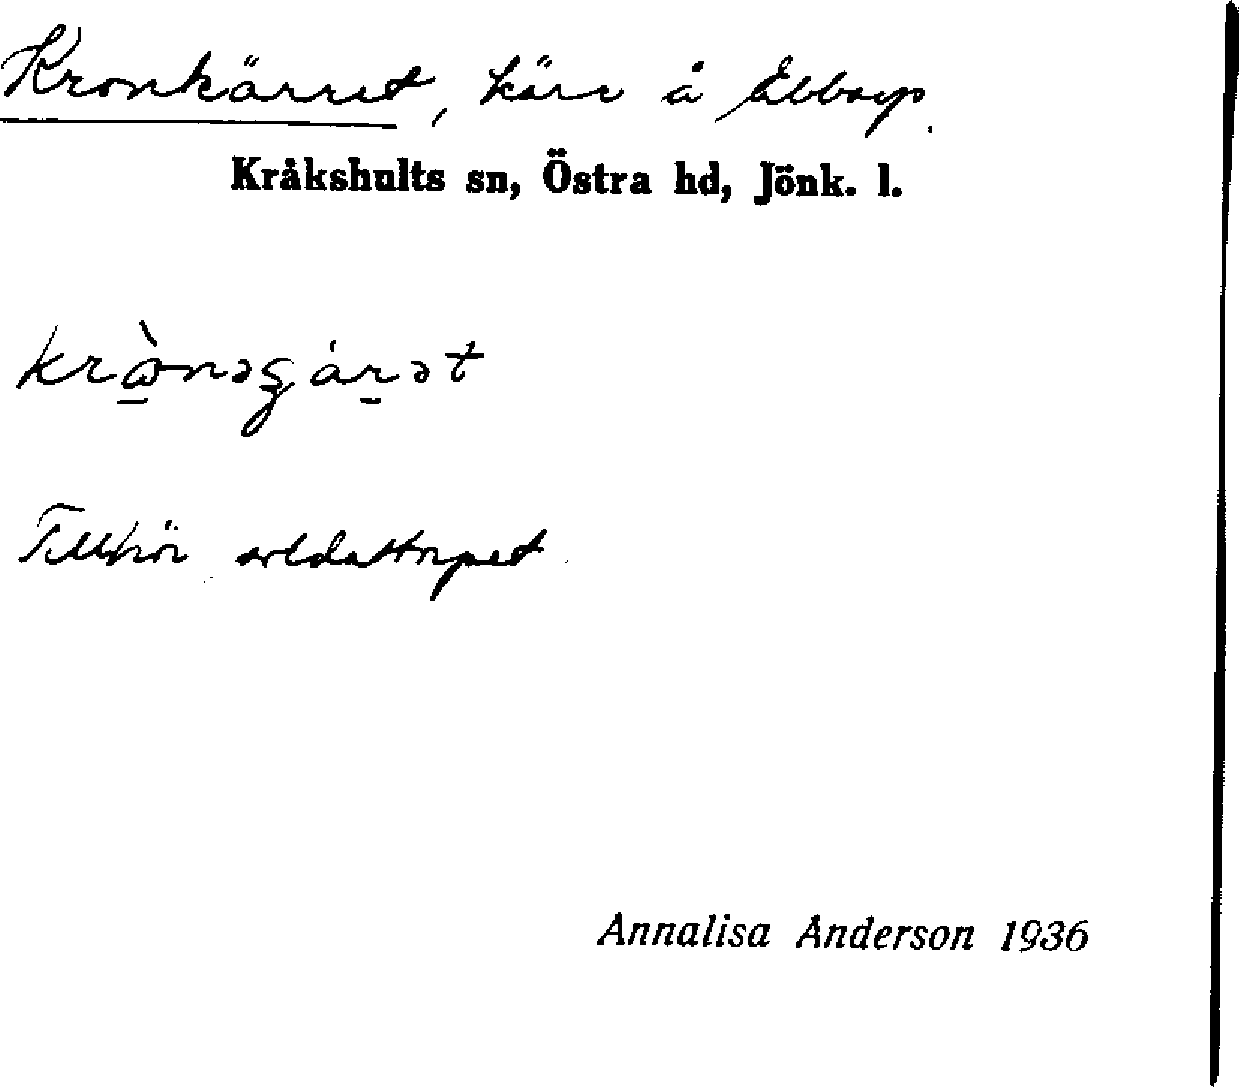 Kronkärret, kärr å Åbborp.
Kråkshults sn, Östra hd, Jönk. l.
Tillhör soldattorpet
Annalisa Anderson 1936